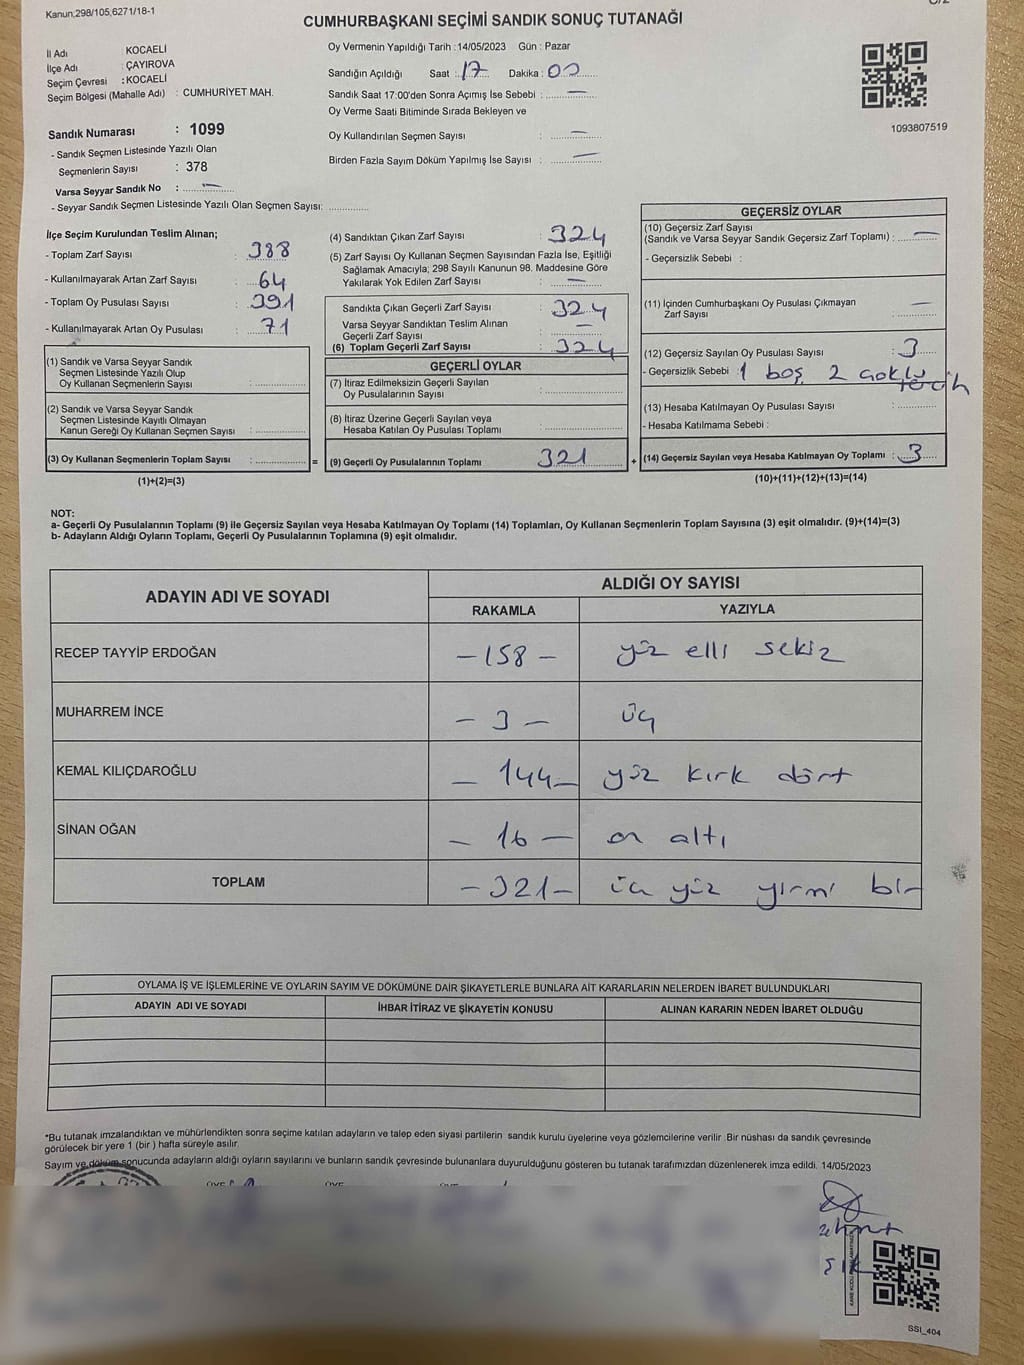 Kanun;298/105,6271/18-1
CUMHURBAŞKANI SEÇİMİ SANDIK SONUÇ TUTANAĞI
İl Adı : KOCAELİ
İlçe Adı : ÇAYIROVA
Seçim Çevresi : KOCAELİ
Seçim Bölgesi (Mahalle Adı) : CUMHURİYET MAH.
Sandık Numarası : 1099
- Sandık Seçmen Listesinde Yazılı Olan
Seçmenlerin Sayısı : 378
Varsa Seyyar Sandık No : —
- Seyyar Sandık Seçmen Listesinde Yazılı Olan Seçmen Sayısı: ..............
Oy Vermenin Yapıldığı Tarih : 14/05/2023 Gün : Pazar
Sandığın Açıldığı Saat : 17 Dakika : 00
Sandık Saat 17:00'den Sonra Açımış İse Sebebi : —
Oy Verme Saati Bitiminde Sırada Bekleyen ve
Oy Kullandırılan Seçmen Sayısı : —
Birden Fazla Sayım Döküm Yapılmış İse Sayısı : —
1093807519
İlçe Seçim Kurulundan Teslim Alınan;
- Toplam Zarf Sayısı : 388
- Kullanılmayarak Artan Zarf Sayısı : 64
- Toplam Oy Pusulası Sayısı : 391
- Kullanılmayarak Artan Oy Pusulası : 71
(1) Sandık ve Varsa Seyyar Sandık
Seçmen Listesinde Yazılı Olup
Oy Kullanan Seçmenlerin Sayısı : ..............
(2) Sandık ve Varsa Seyyar Sandık
Seçmen Listesinde Kayıtlı Olmayan
Kanun Gereği Oy Kullanan Seçmen Sayısı : ..............
(3) Oy Kullanan Seçmenlerin Toplam Sayısı : .............. =
(1)+(2)=(3)
(4) Sandıktan Çıkan Zarf Sayısı : 324
(5) Zarf Sayısı Oy Kullanan Seçmen Sayısından Fazla İse, Eşitliği
Sağlamak Amacıyla; 298 Sayılı Kanunun 98. Maddesine Göre
Yakılarak Yok Edilen Zarf Sayısı : —
Sandıkta Çıkan Geçerli Zarf Sayısı : 324
Varsa Seyyar Sandıktan Teslim Alınan
Geçerli Zarf Sayısı : —
(6) Toplam Geçerli Zarf Sayısı : 324
GEÇERLİ OYLAR
(7) İtiraz Edilmeksizin Geçerli Sayılan
Oy Pusulalarının Sayısı : ..............
(8) İtiraz Üzerine Geçerli Sayılan veya
Hesaba Katılan Oy Pusulası Toplamı : ..............
(9) Geçerli Oy Pusulalarının Toplamı 321 +
GEÇERSİZ OYLAR
(10) Geçersiz Zarf Sayısı
(Sandık ve Varsa Seyyar Sandık Geçersiz Zarf Toplamı) : —
- Geçersizlik Sebebi :
(11) İçinden Cumhurbaşkanı Oy Pusulası Çıkmayan
Zarf Sayısı : —
(12) Geçersiz Sayılan Oy Pusulası Sayısı : 3
- Geçersizlik Sebebi : 1 boş 2 çoklu
tercih
(13) Hesaba Katılmayan Oy Pusulası Sayısı : ..............
- Hesaba Katılmama Sebebi :
(14) Geçersiz Sayılan veya Hesaba Katılmayan Oy Toplamı : 3
(10)+(11)+(12)+(13)=(14)
NOT:
a- Geçerli Oy Pusulalarının Toplamı (9) ile Geçersiz Sayılan veya Hesaba Katılmayan Oy Toplamı (14) Toplamları, Oy Kullanan Seçmenlerin Toplam Sayısına (3) eşit olmalıdır. (9)+(14)=(3)
b- Adayların Aldığı Oyların Toplamı, Geçerli Oy Pusulalarının Toplamına (9) eşit olmalıdır.
ADAYIN ADI VE SOYADI ALDIĞI OY SAYISI
RAKAMLA YAZIYLA
RECEP TAYYİP ERDOĞAN –158– yüz elli sekiz
MUHARREM İNCE –3– üç
KEMAL KILIÇDAROĞLU –144– yüz kırk dört
SİNAN OĞAN –16– on altı
TOPLAM –321– üç yüz yirmi bir
OYLAMA İŞ VE İŞLEMLERİNE VE OYLARIN SAYIM VE DÖKÜMÜNE DAİR ŞİKAYETLERLE BUNLARA AİT KARARLARIN NELERDEN İBARET BULUNDUKLARI
ADAYIN ADI VE SOYADI İHBAR İTİRAZ VE ŞİKAYETİN KONUSU ALINAN KARARIN NEDEN İBARET OLDUĞU
*Bu tutanak imzalandıktan ve mühürlendikten sonra seçime katılan adayların ve talep eden siyasi partilerin sandık kurulu üyelerine veya gözlemcilerine verilir .Bir nüshası da sandık çevresinde
görülecek bir yere 1 (bir ) hafta süreyle asılır.
Sayım ve döküm sonucunda adayların aldığı oyların sayılarını ve bunların sandık çevresinde bulunanlara duyurulduğunu gösteren bu tutanak tarafımızdan düzenlenerek imza edildi. 14/05/2023
SSI_404